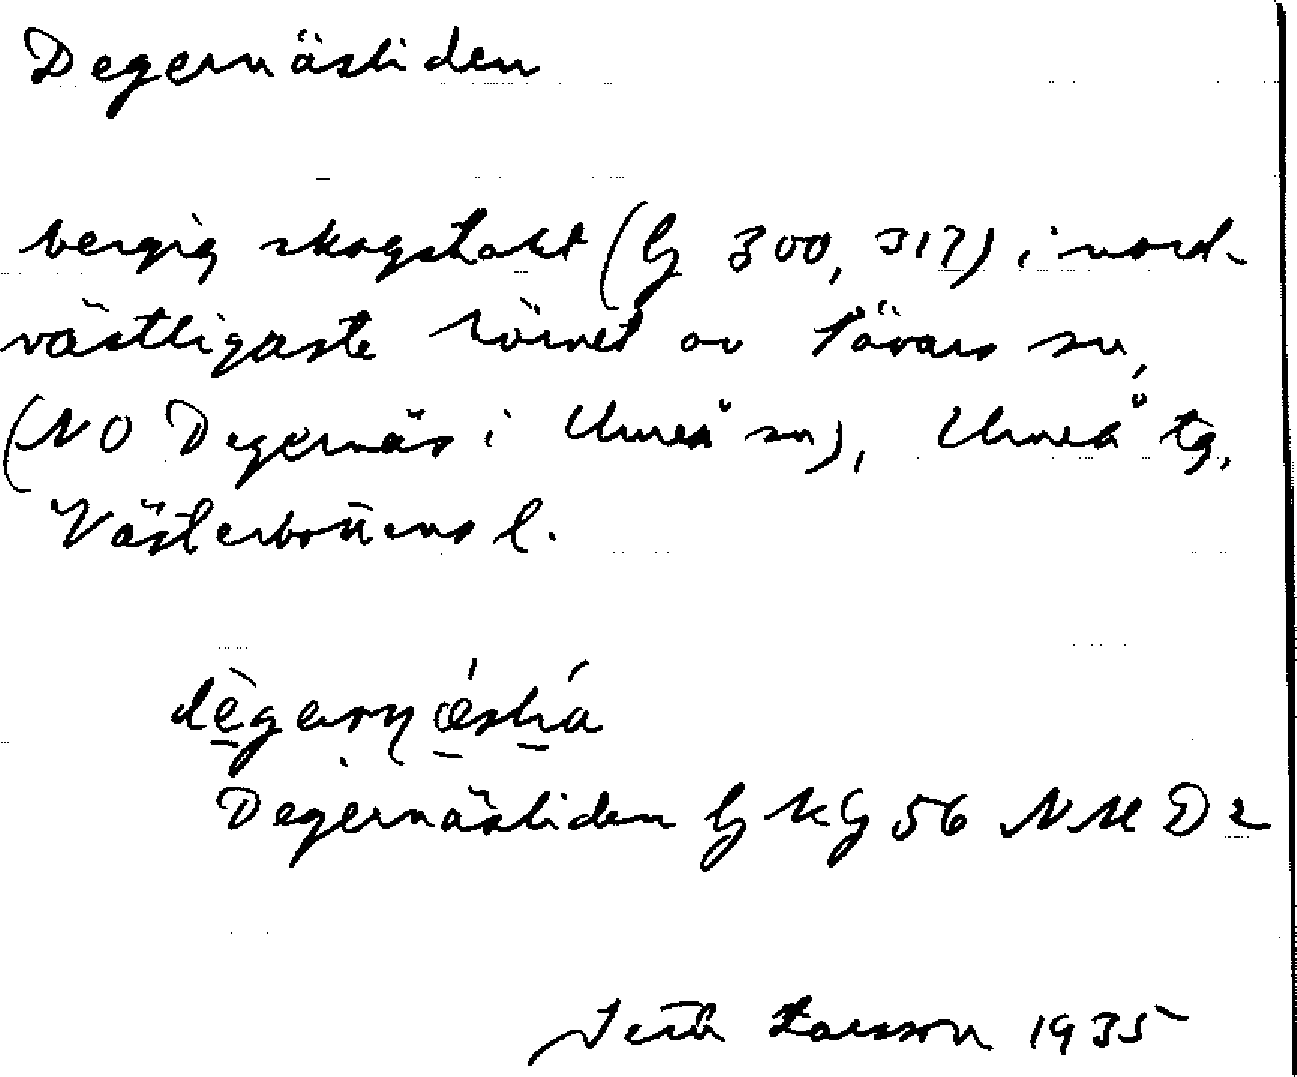 Degernäsliden
bergig skogstrakt (G 300, 317) i nord-
västligaste hörnet av Sävars sn,
(NO Degernäs i Umeå sn), Umeå tg,
Västerbottens l.
Degernäsliden G K G 56 NM D 2
Seth Larsson 1935